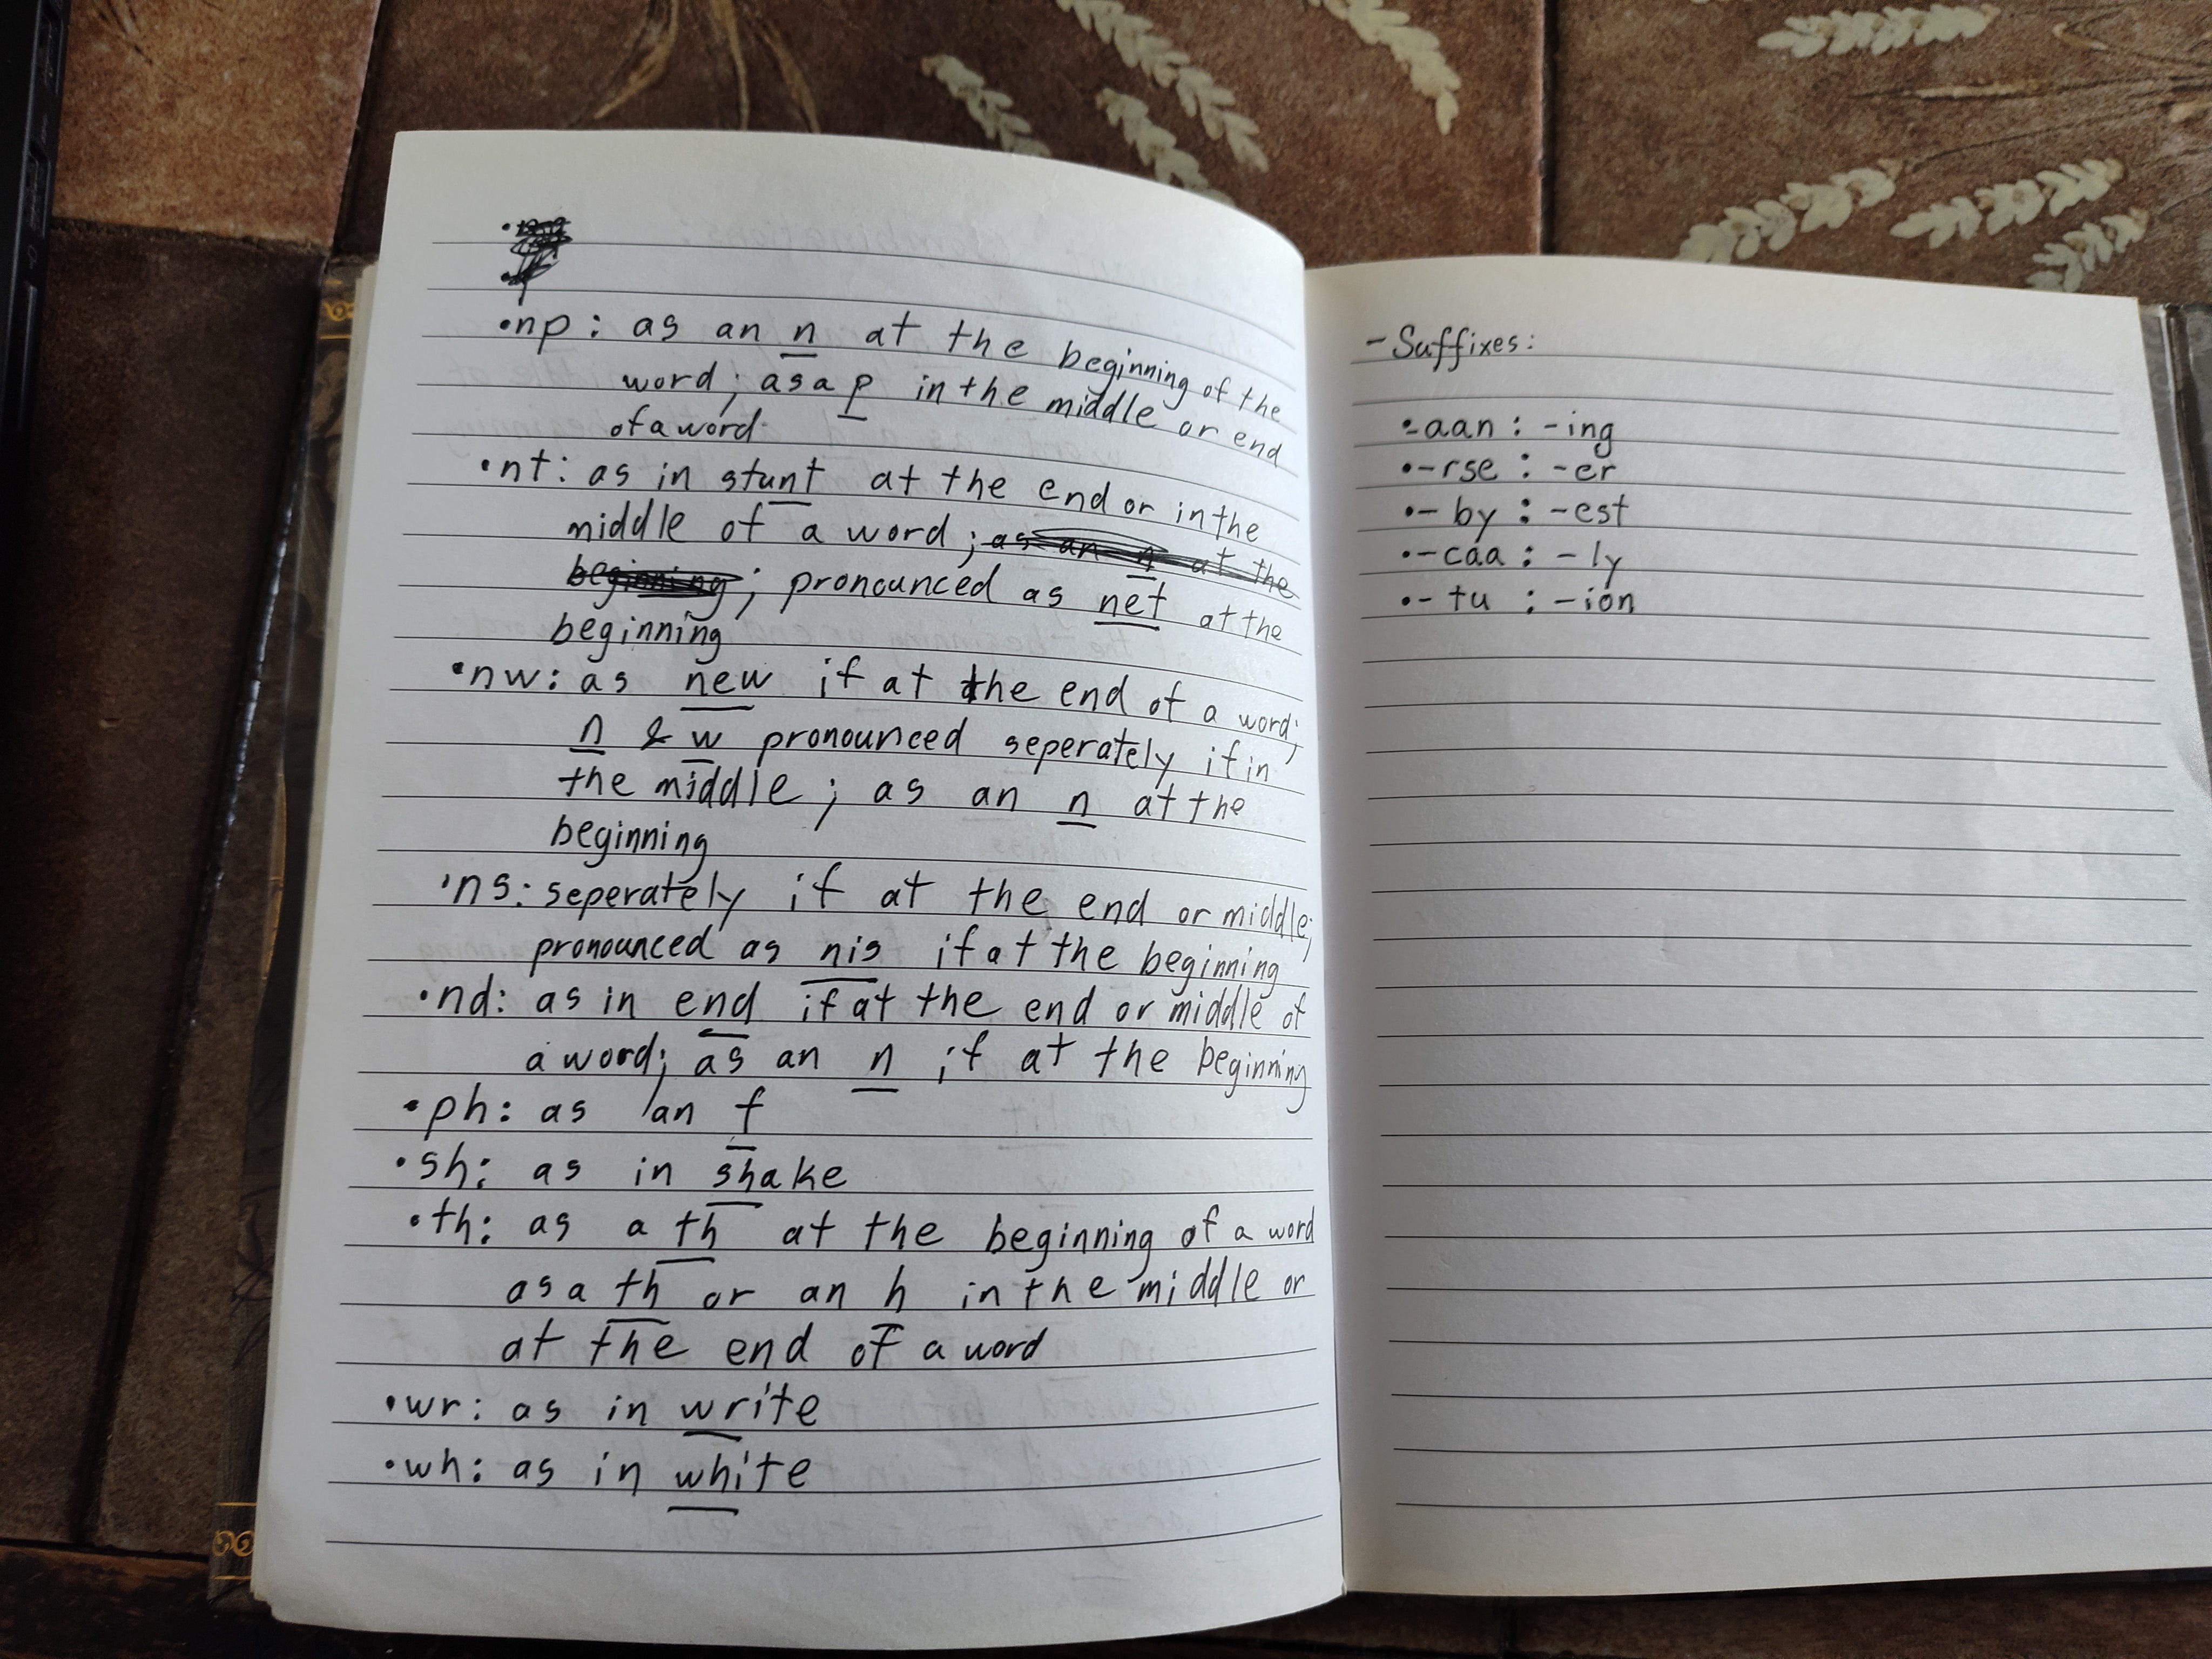 •np: as an n at the beginning of the
word; as a p in the middle or end
of a word
•nt: as in stunt at the end or in the
middle of a word; as an n at the
beginning; pronounced as net at the
beginning
•nw: as new if at the end of a word;
n & w pronounced seperately if in
the middle; as an n at the
beginning
•ns: seperately if at the end or middle;
pronounced as nis if at the beginning
•nd: as in end if at the end or middle of
a word; as an n if at the beginning
•ph: as an f
•sh: as in shake
•th: as a th at the beginning of a word
as a th or an h in the middle or
at the end of a word
•wr: as in write
•wh: as in white
- Suffixes:
•-aan: -ing
•-rse: -er
•-by: -est
•-caa: -ly
•-tu: -ion